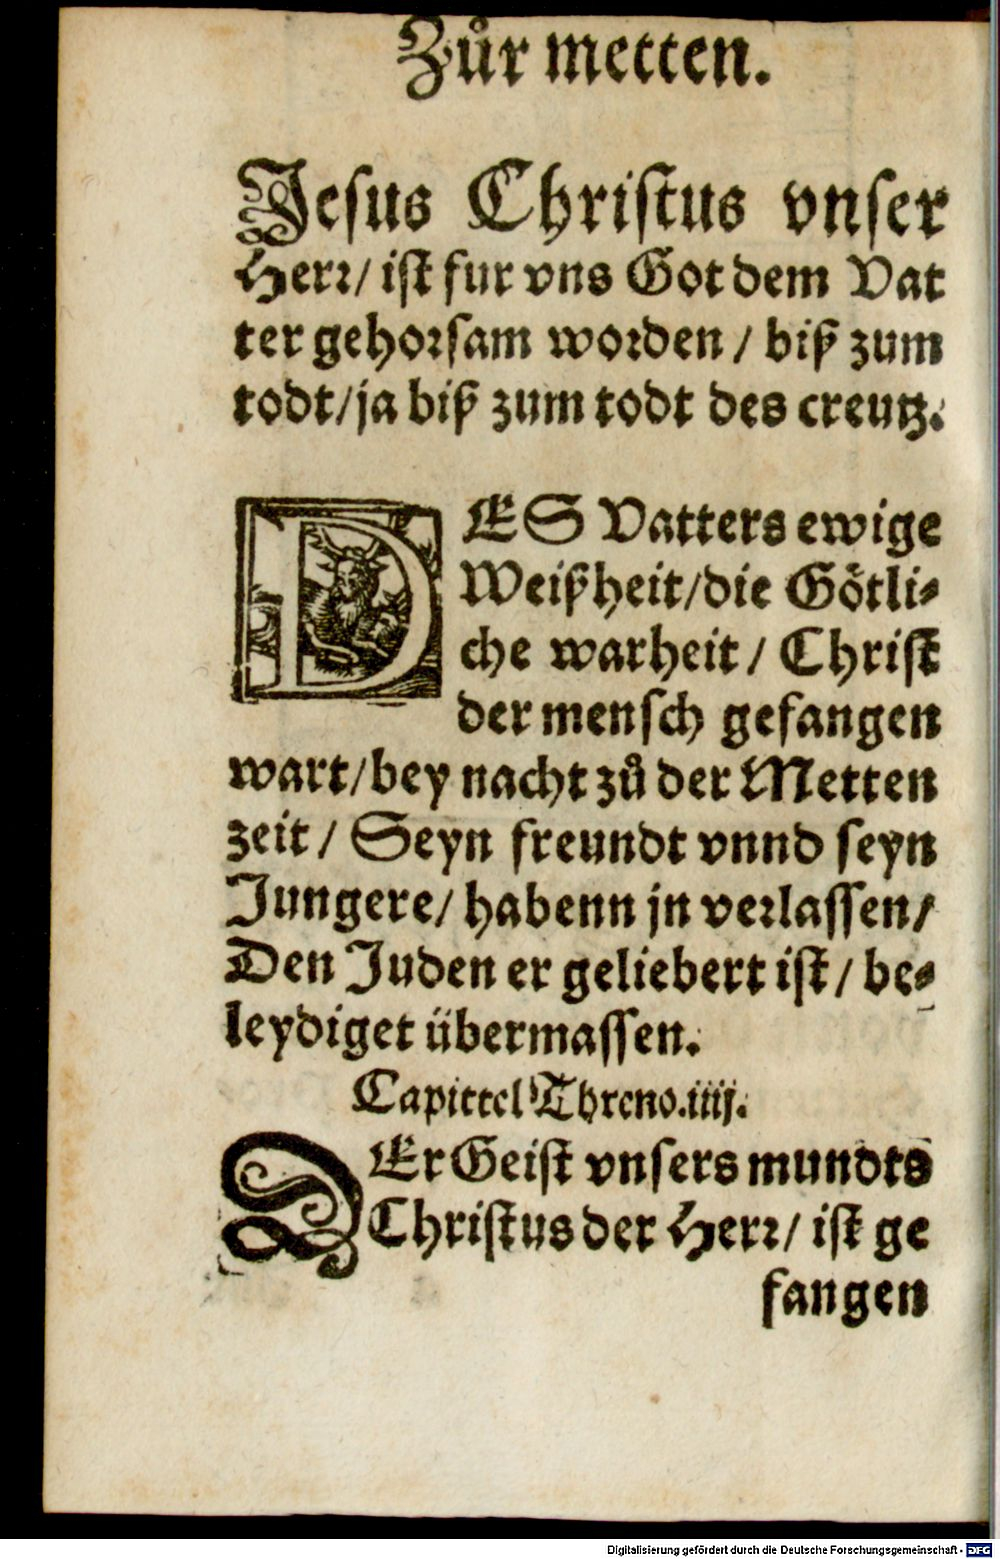 Zůr metten.
Jesus Christus vnser
Herr/ ist fur vns Got dem Vat
ter gehorsam worden / biß zum
todt/ja biß zum todt des creutz.
DES Vatters ewige
Weißheit/die Götli⸗
che warheit / Christ
der mensch gefangen
wart/bey nacht zů der Metten
zeit / Seyn freundt vnnd seyn
Jungere/ habenn jn verlassen/
Den Juden er geliebert ist / be⸗
leydiget übermassen.
Capittel Threno.iiij.
DEr Geist vnsers mundts
Christus der Herr/ ist ge
fangen
Digitalisierung gefördert durch die Deutsche Forschungsgemeinschaft - DFG